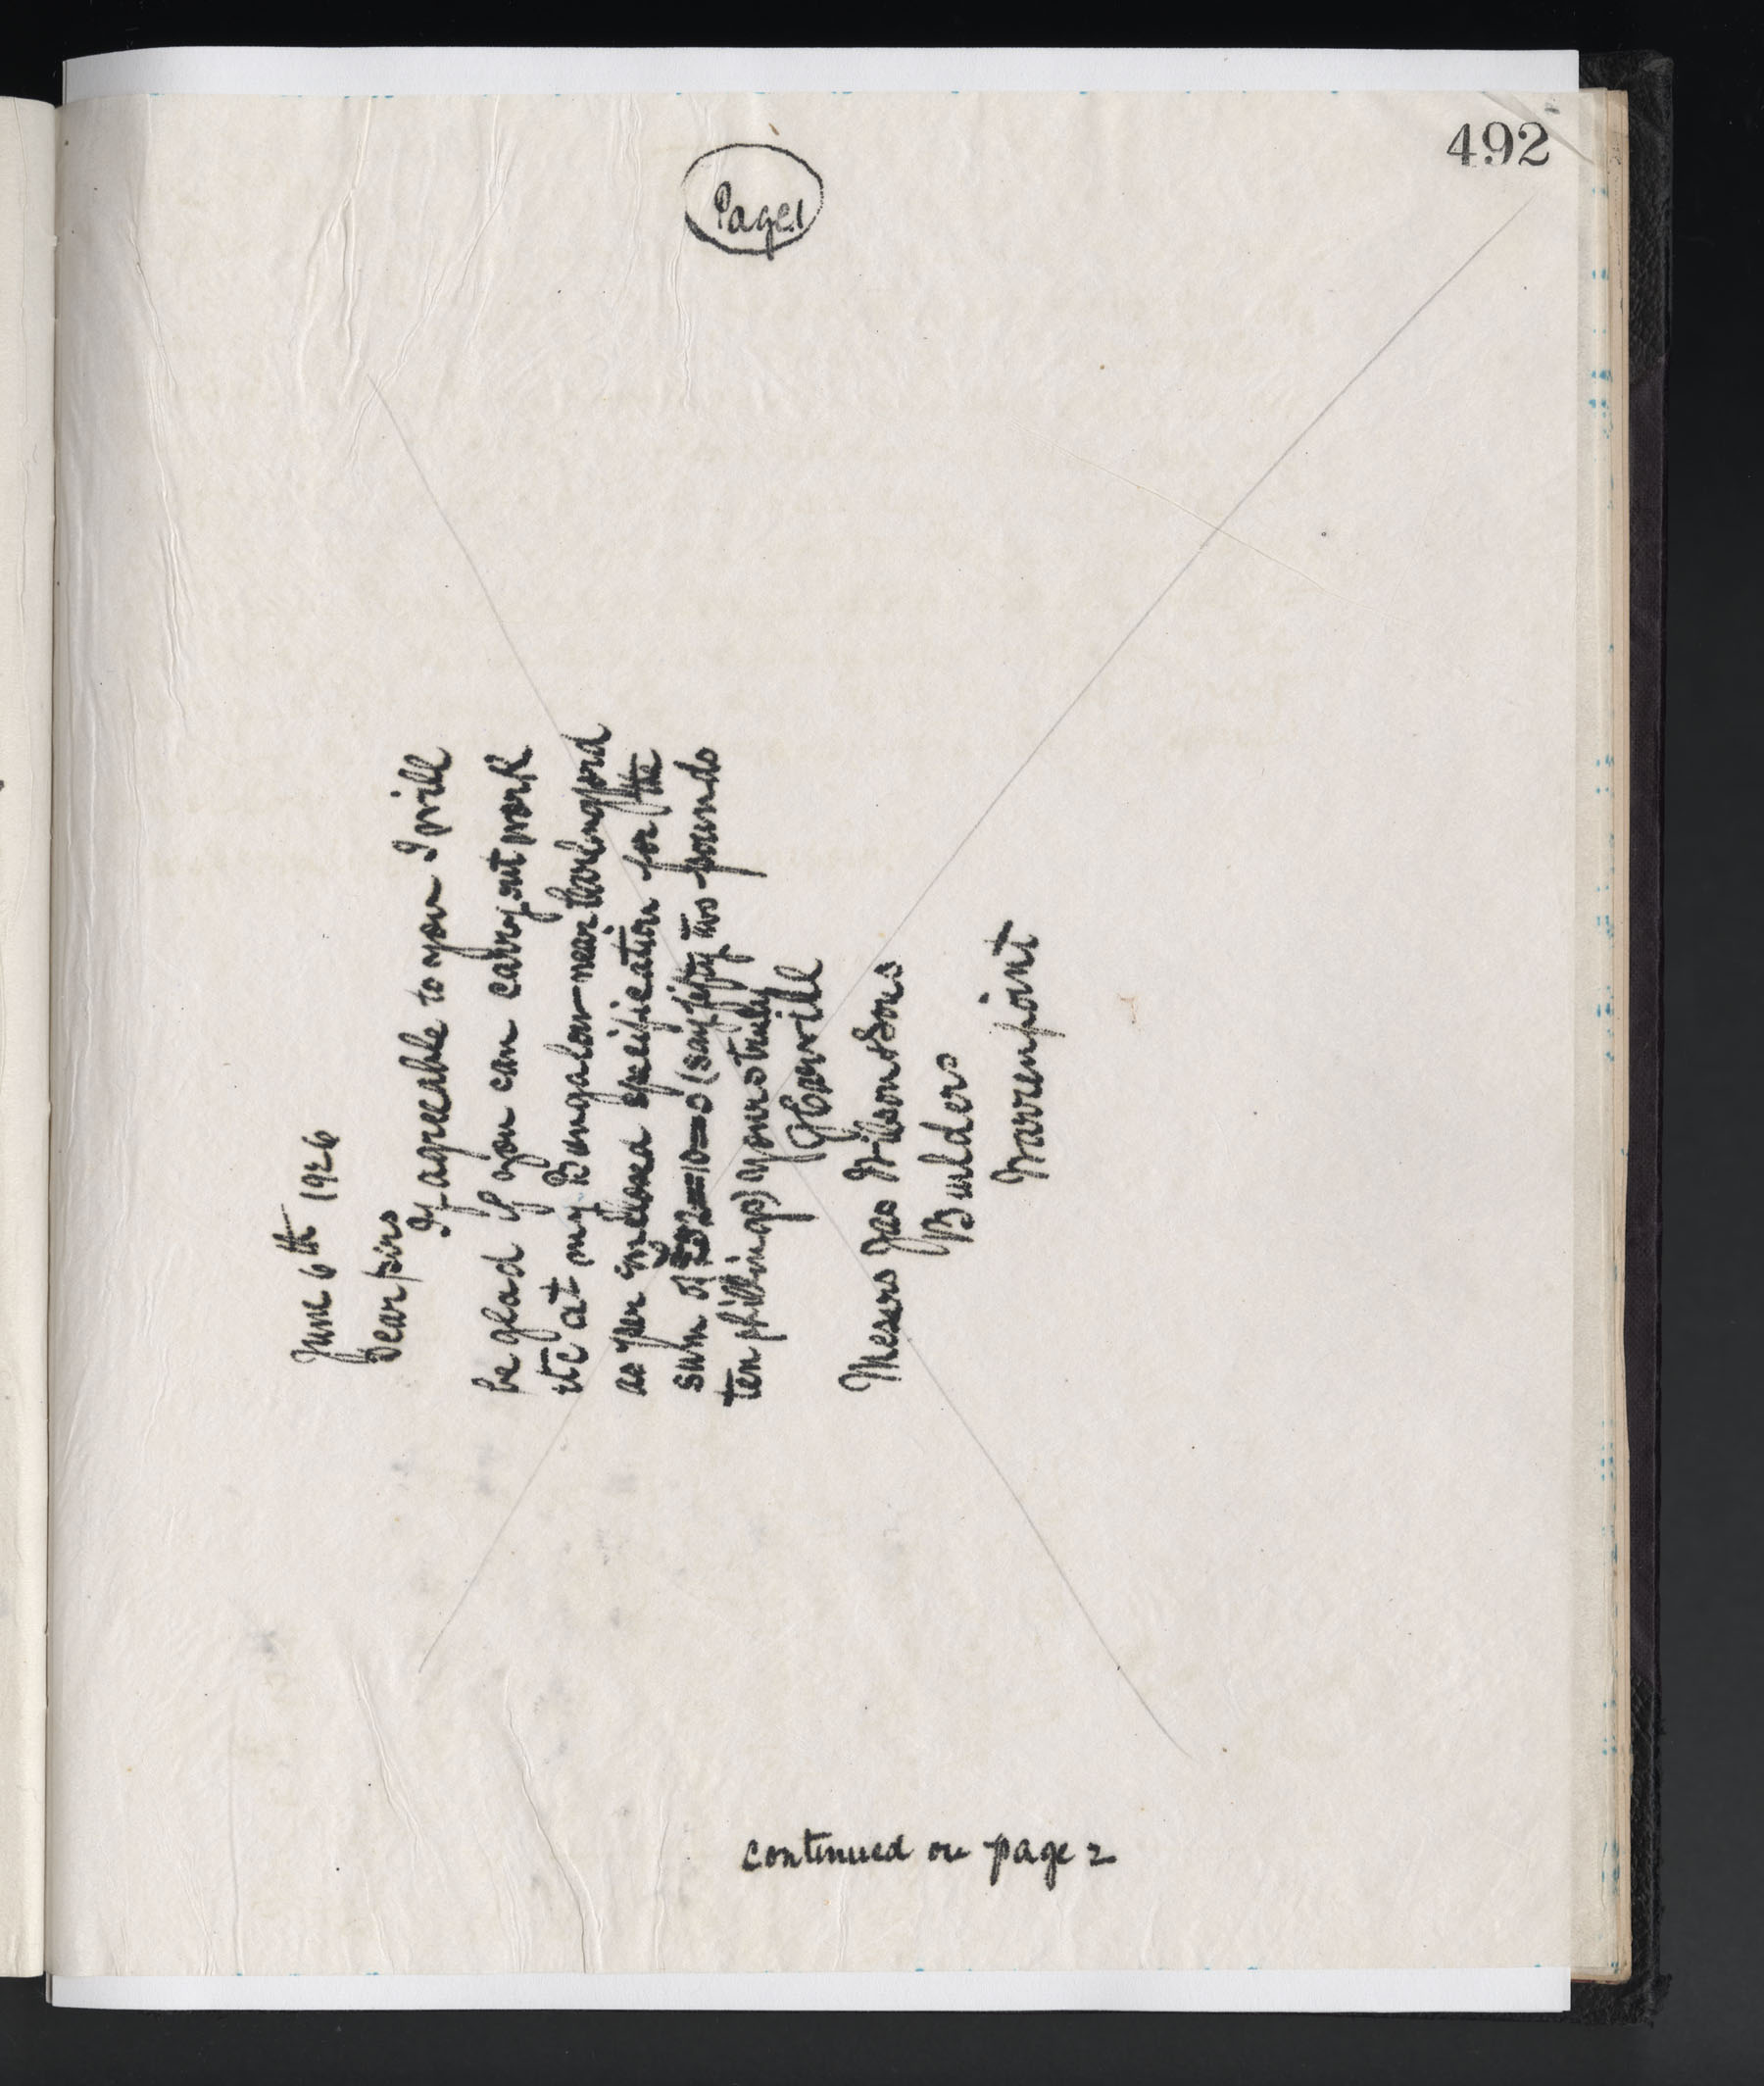 492
Page 1
June 6th 1926
Dear Sirs
If agreeable to you I will
be glad if you can carry out work
etc at my Bungalow near Carlingford
as per enclosed specification for the
sum of £52=10=0 (say fifty two pounds
ten shillings) yours truly
Messrs Jas Wilson & Sons
Builders
Warrenpoint
continued on page 2